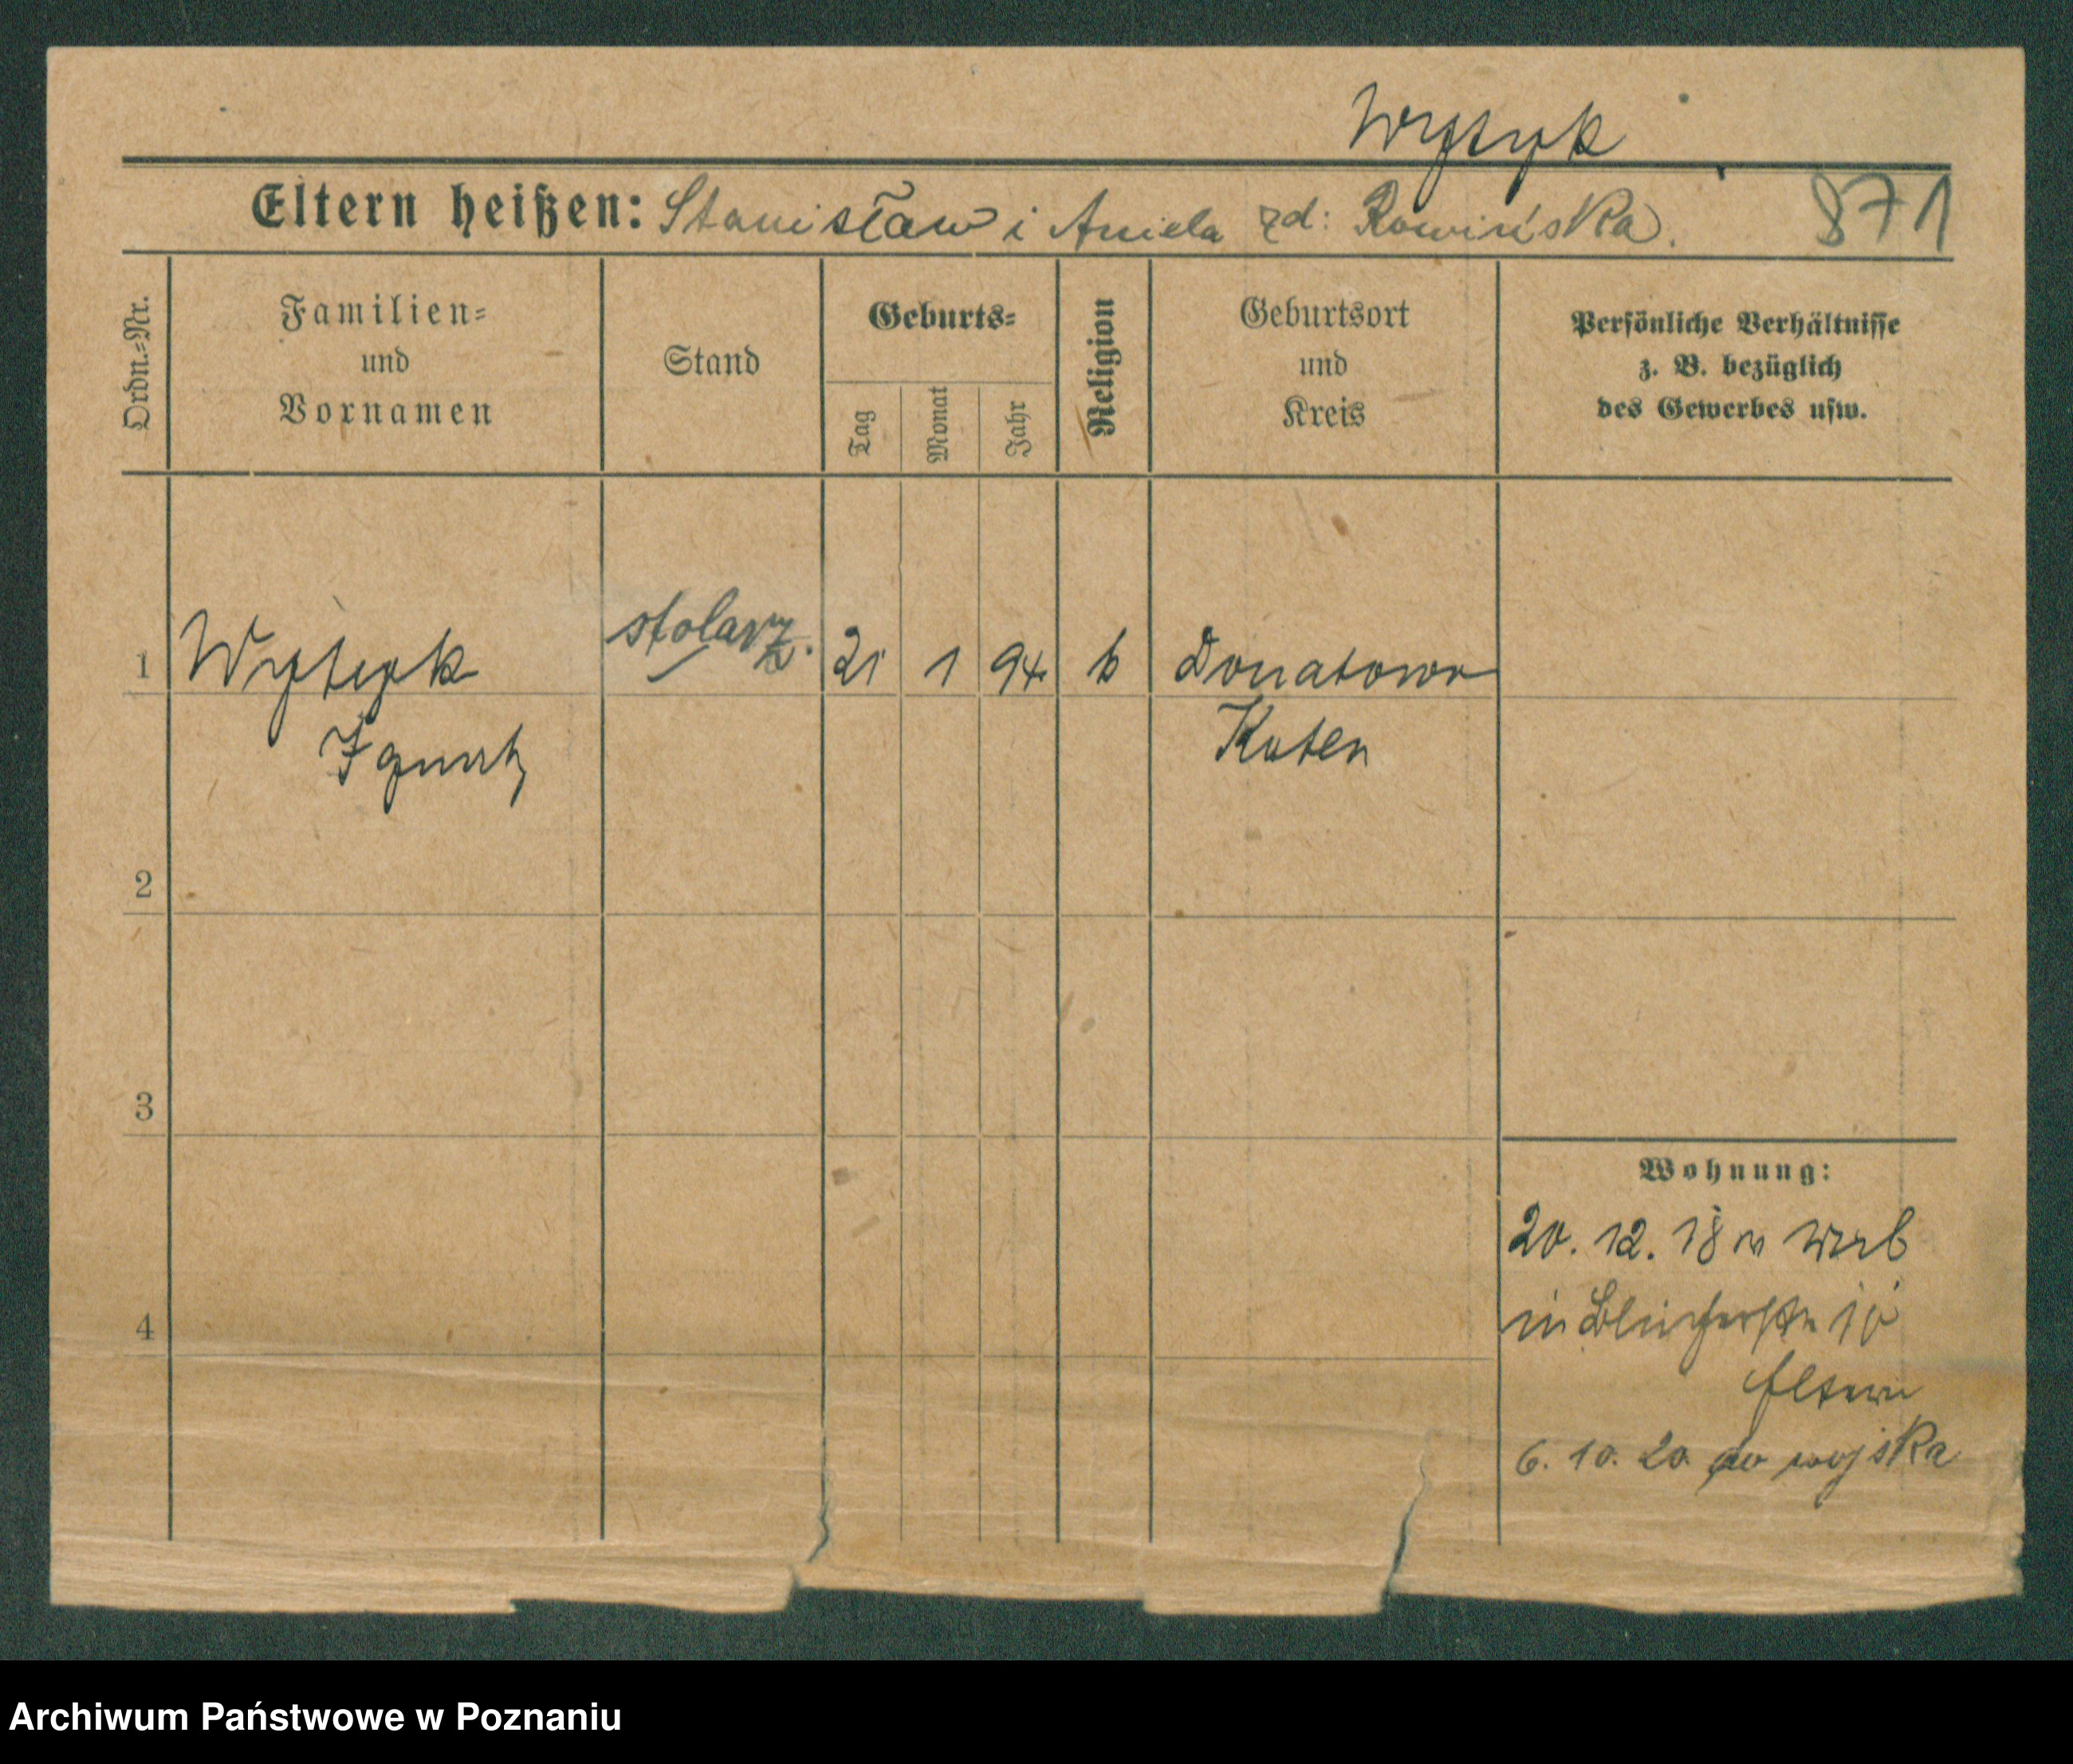 Wyszyk
Eltern heißen: Stanisław i Aniela zd: Rowińska. 871
Ordn.-Nr.
Familien-
und
Vornamen
Stand
Geburts-
Tag
Monat
Jahr
Religion
Geburtsort
und
Kreis
Persönliche Verhältnisse
z. B. bezüglich
des Gewerbes usw.
1 stolarz. 21 1 94 k Donatowo
Ignatz Kosten
2
3
4
Wohnung:
20. 12. 18
in Blücherstr 10
Eltern
6. 10. 20 do wojska
Archiwum Państwowe w Poznaniu